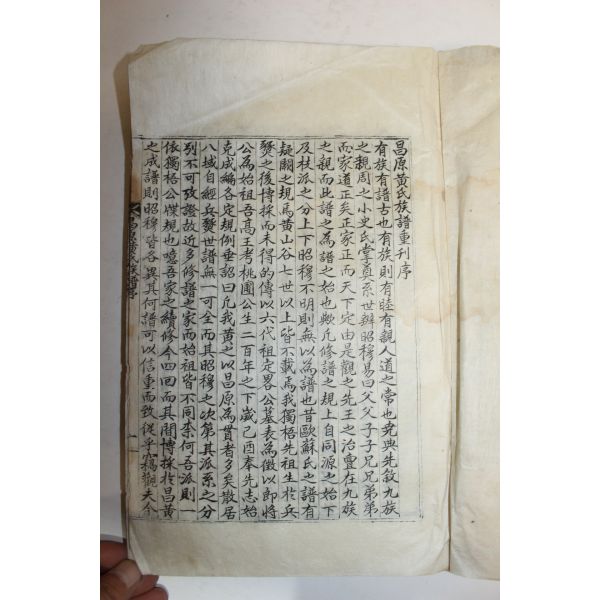 昌原黃氏族譜重刊序
有族有譜古也有族則有睦有親人道之常也堯典先敘九族
之親周之小史氏掌奠系世辨昭穆易曰父父子子兄兄弟弟
而家道正矣正家正而天下定由是觀之先王之治亶在九族
之親而此譜之為譜之始也歟凡修譜之規上自同源之始下
及枝派之分上下昭穆不明則無以為譜也昔歐蘇氏之譜有
疑闕之規焉黃山谷七世以上皆不載焉我獨梧先祖生於兵
燹之後博採而未得的傳以六代祖定畧公墓表為徵以即將
公為始祖吾高王考桃圃公生二百年之下歲己酉奉先志始
克成編各定規例垂詔曰凡我黃之以昌原為貫者多矣散居
八域自經兵燹世譜無一可全而其昭穆之次第其派系之分
列不可攷證故近多修譜之家而始祖皆不同柰何吾派則一
依獨梧公牒規也噫吾家之續修今四回而其間博採於昌黃
之成譜則昭穆皆各異其何譜可以信重而致從乎竊觀夫今
昌原黃氏族譜序
一